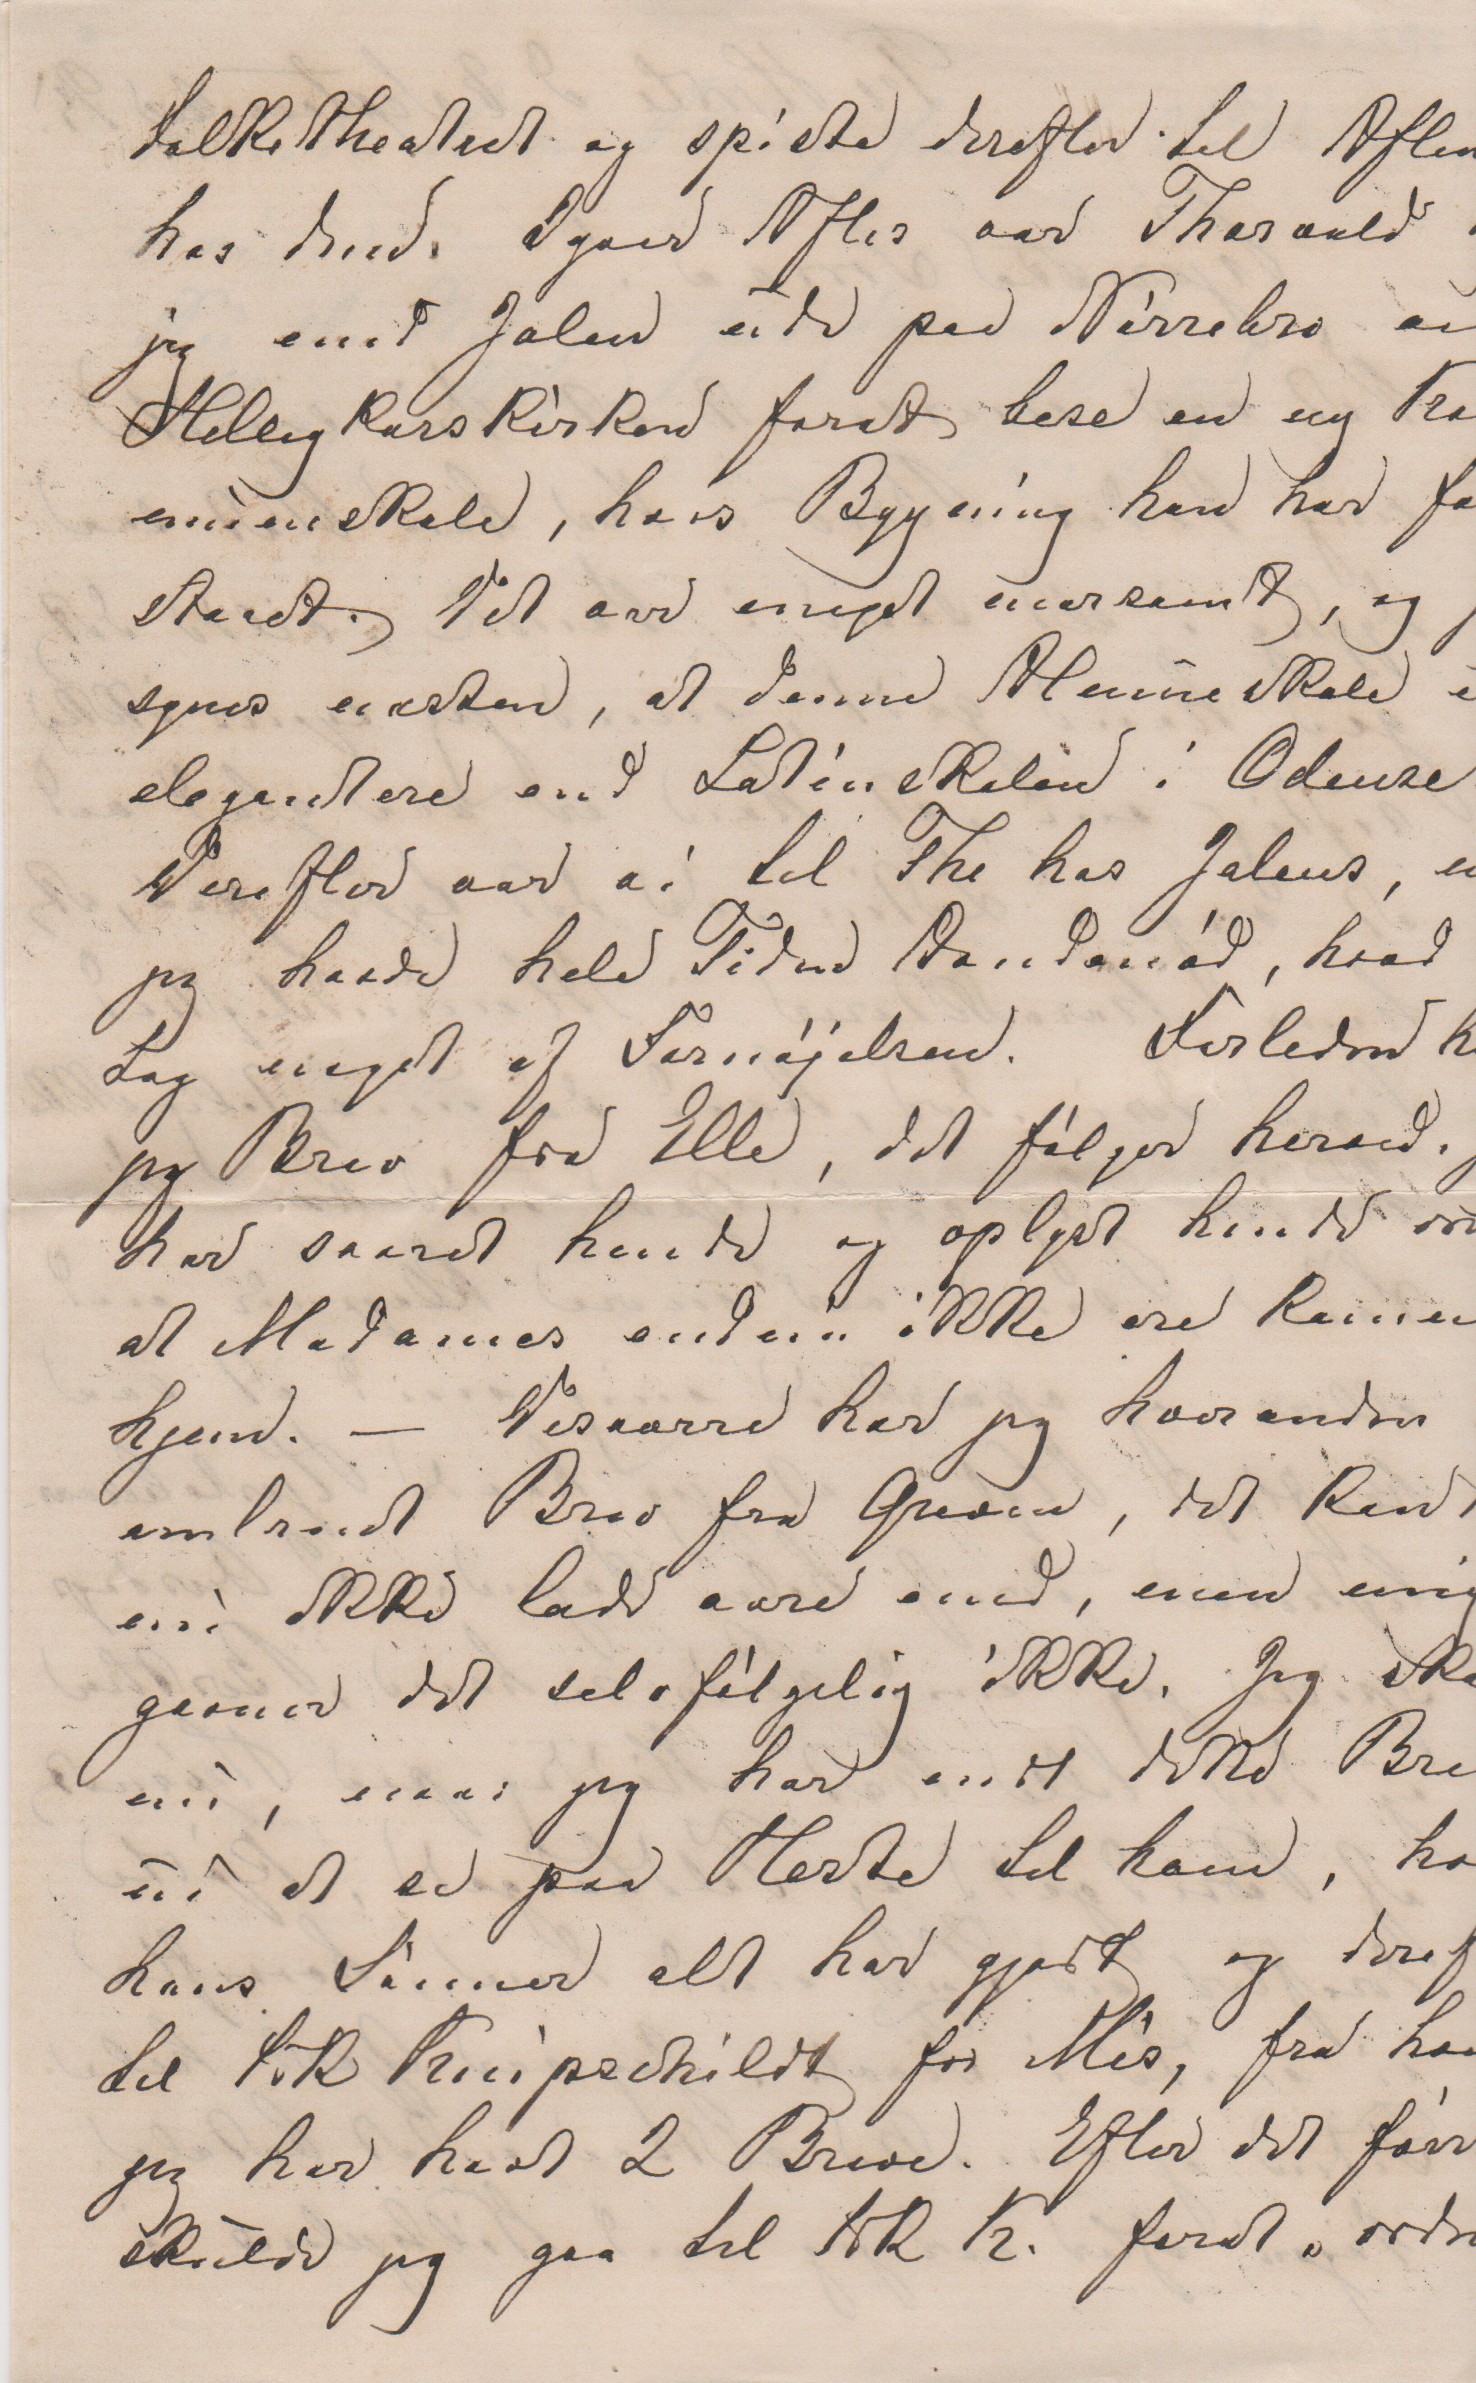 Folketheatret og spiste derefter til Aften
hos dem. Igaar Aftes var Thorvald
jeg med Jalen ude paa Nørrebro
Helligkorskirken forat bese en ny Kom
muneskole, hvis Bygning han har fo
staaet. Det var meget morsomt, og j
synes næsten, at denne Almueskole e
elegantere end Latinskolen i Odense
Derefter var vi til The hos Jalens, m
jeg havde hele Tiden Tandand, hvad
tog noget af Fornøjelsen. Forleden h
jeg Brev fra Elle, det følger herved. J
har svaret hende og oplyst hende om
at Madames endnu ikke ere kommen
hjem. — Desværre har jeg hverandre
ombrudt Brev fra Græm, det kand
nu ikke lade være med, men mig
gavner det selvfølgelig ikke. Jeg ska
nu, naar jeg har endt dette Bre
ud at se paa Heste til ham, hv
hans Sønner alt har gjort og deref
til Frk Knipschildt for Mis, fra hv
jeg har havt 2 Breve. Efter det før
skulde jeg gaa til Frk K. forat ordn